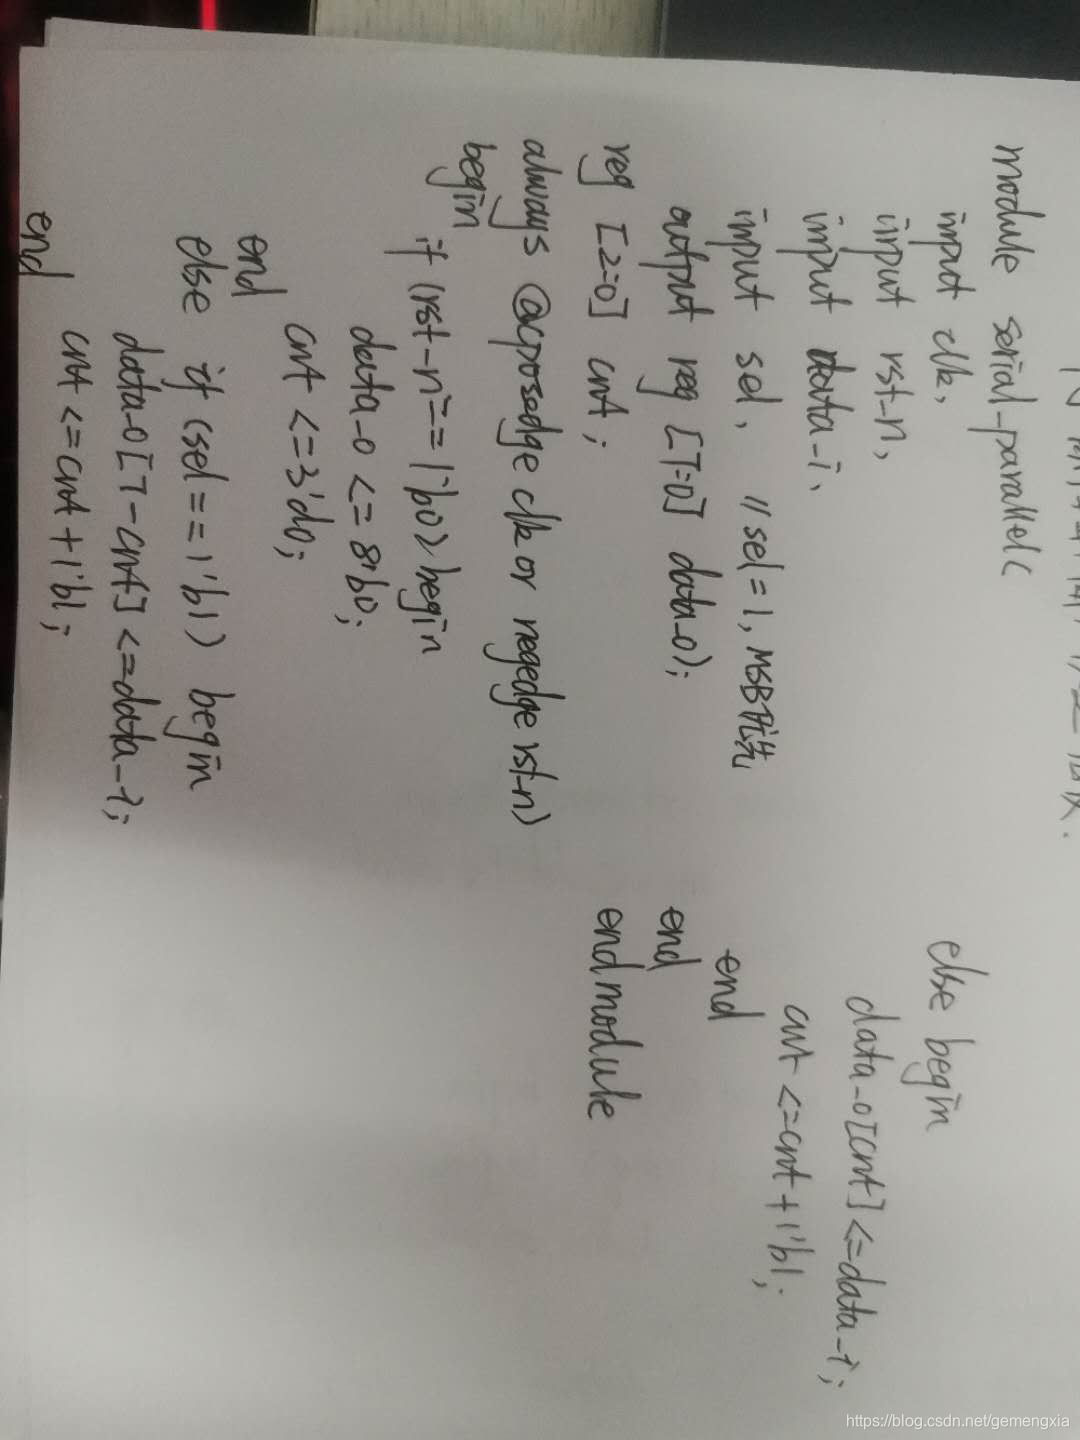 module serial-parallel(
input clk,
input rst-n,
input data-i,
input sel, //sel=1, MSB优先
output reg [7:0] data-o);
reg [2:0] cnt;
always @(posedge clk or negedge rst-n)
begin
if (rst-n==1'b0) begin
data-o <= 8'b0;
cnt <=3'd0;
end
else if (sel==1'b1) begin
data-o[7-cnt] <=data-i;
cnt <=cnt+1'b1;
end
else begin
data-o[cnt] <=data-i;
cnt <=cnt+1'b1;
end
end
endmodule
https://blog.csdn.net/gemengxia